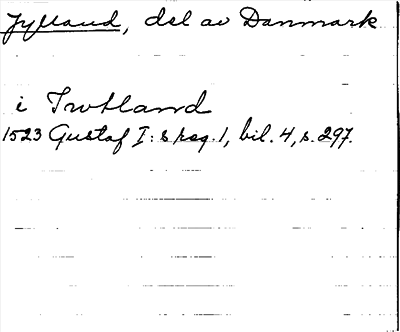 Jylland, del av Danmark
i Jwtland
1523 Gustaf I:s reg. 1, bil. 4, s. 297.